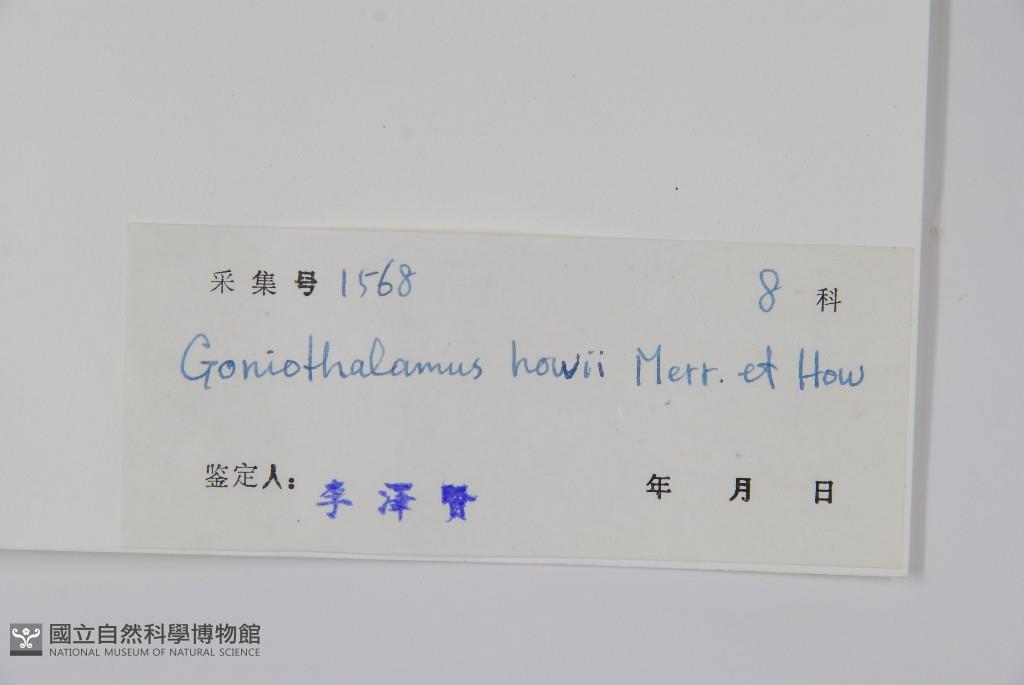 采集号 1568 8 科
Goniothalamus howii Merr. et How
鉴定人: 李泽賢 年 月 日
國立自然科學博物館
NATIONAL MUSEUM OF NATURAL SCIENCE